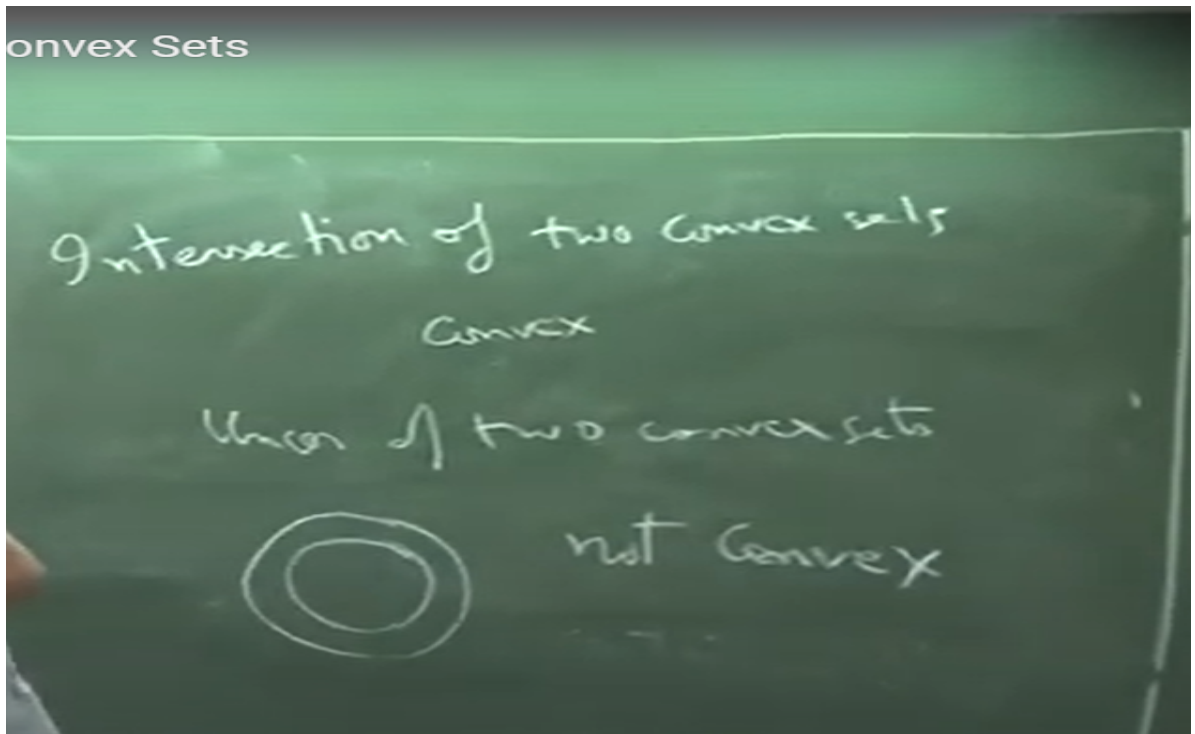 onvex Sets
Intersection of two convex sets
convex
Union of two convex sets
not convex